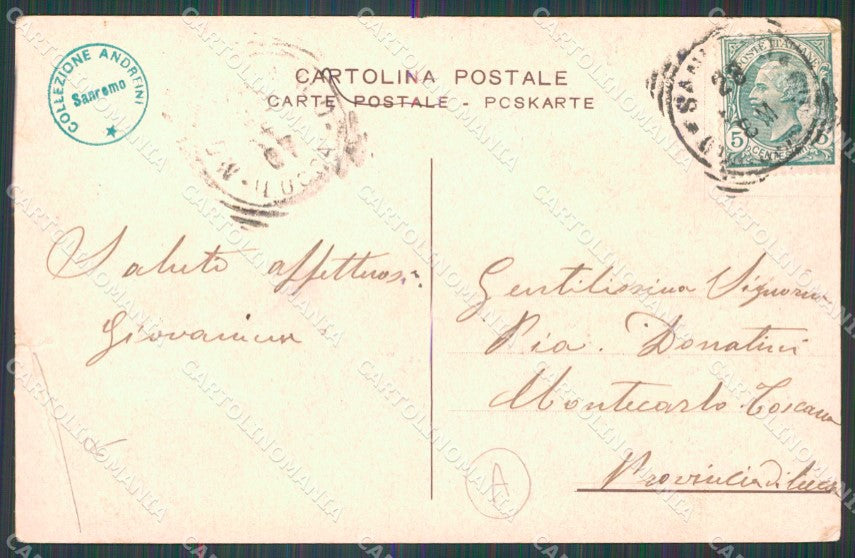 COLLEZIONE ANDREINI
Sanremo
CARTOLINA POSTALE
CARTE POSTALE - POSKARTE
POSTE ITALIANE
5 5
CENT
Saluti affettuosi
Giovannina
Gentilissima Signora
Pia. Donatini
Montecarlo Toscana
Provincia di Lucca
A
CARTOLINOMANIA